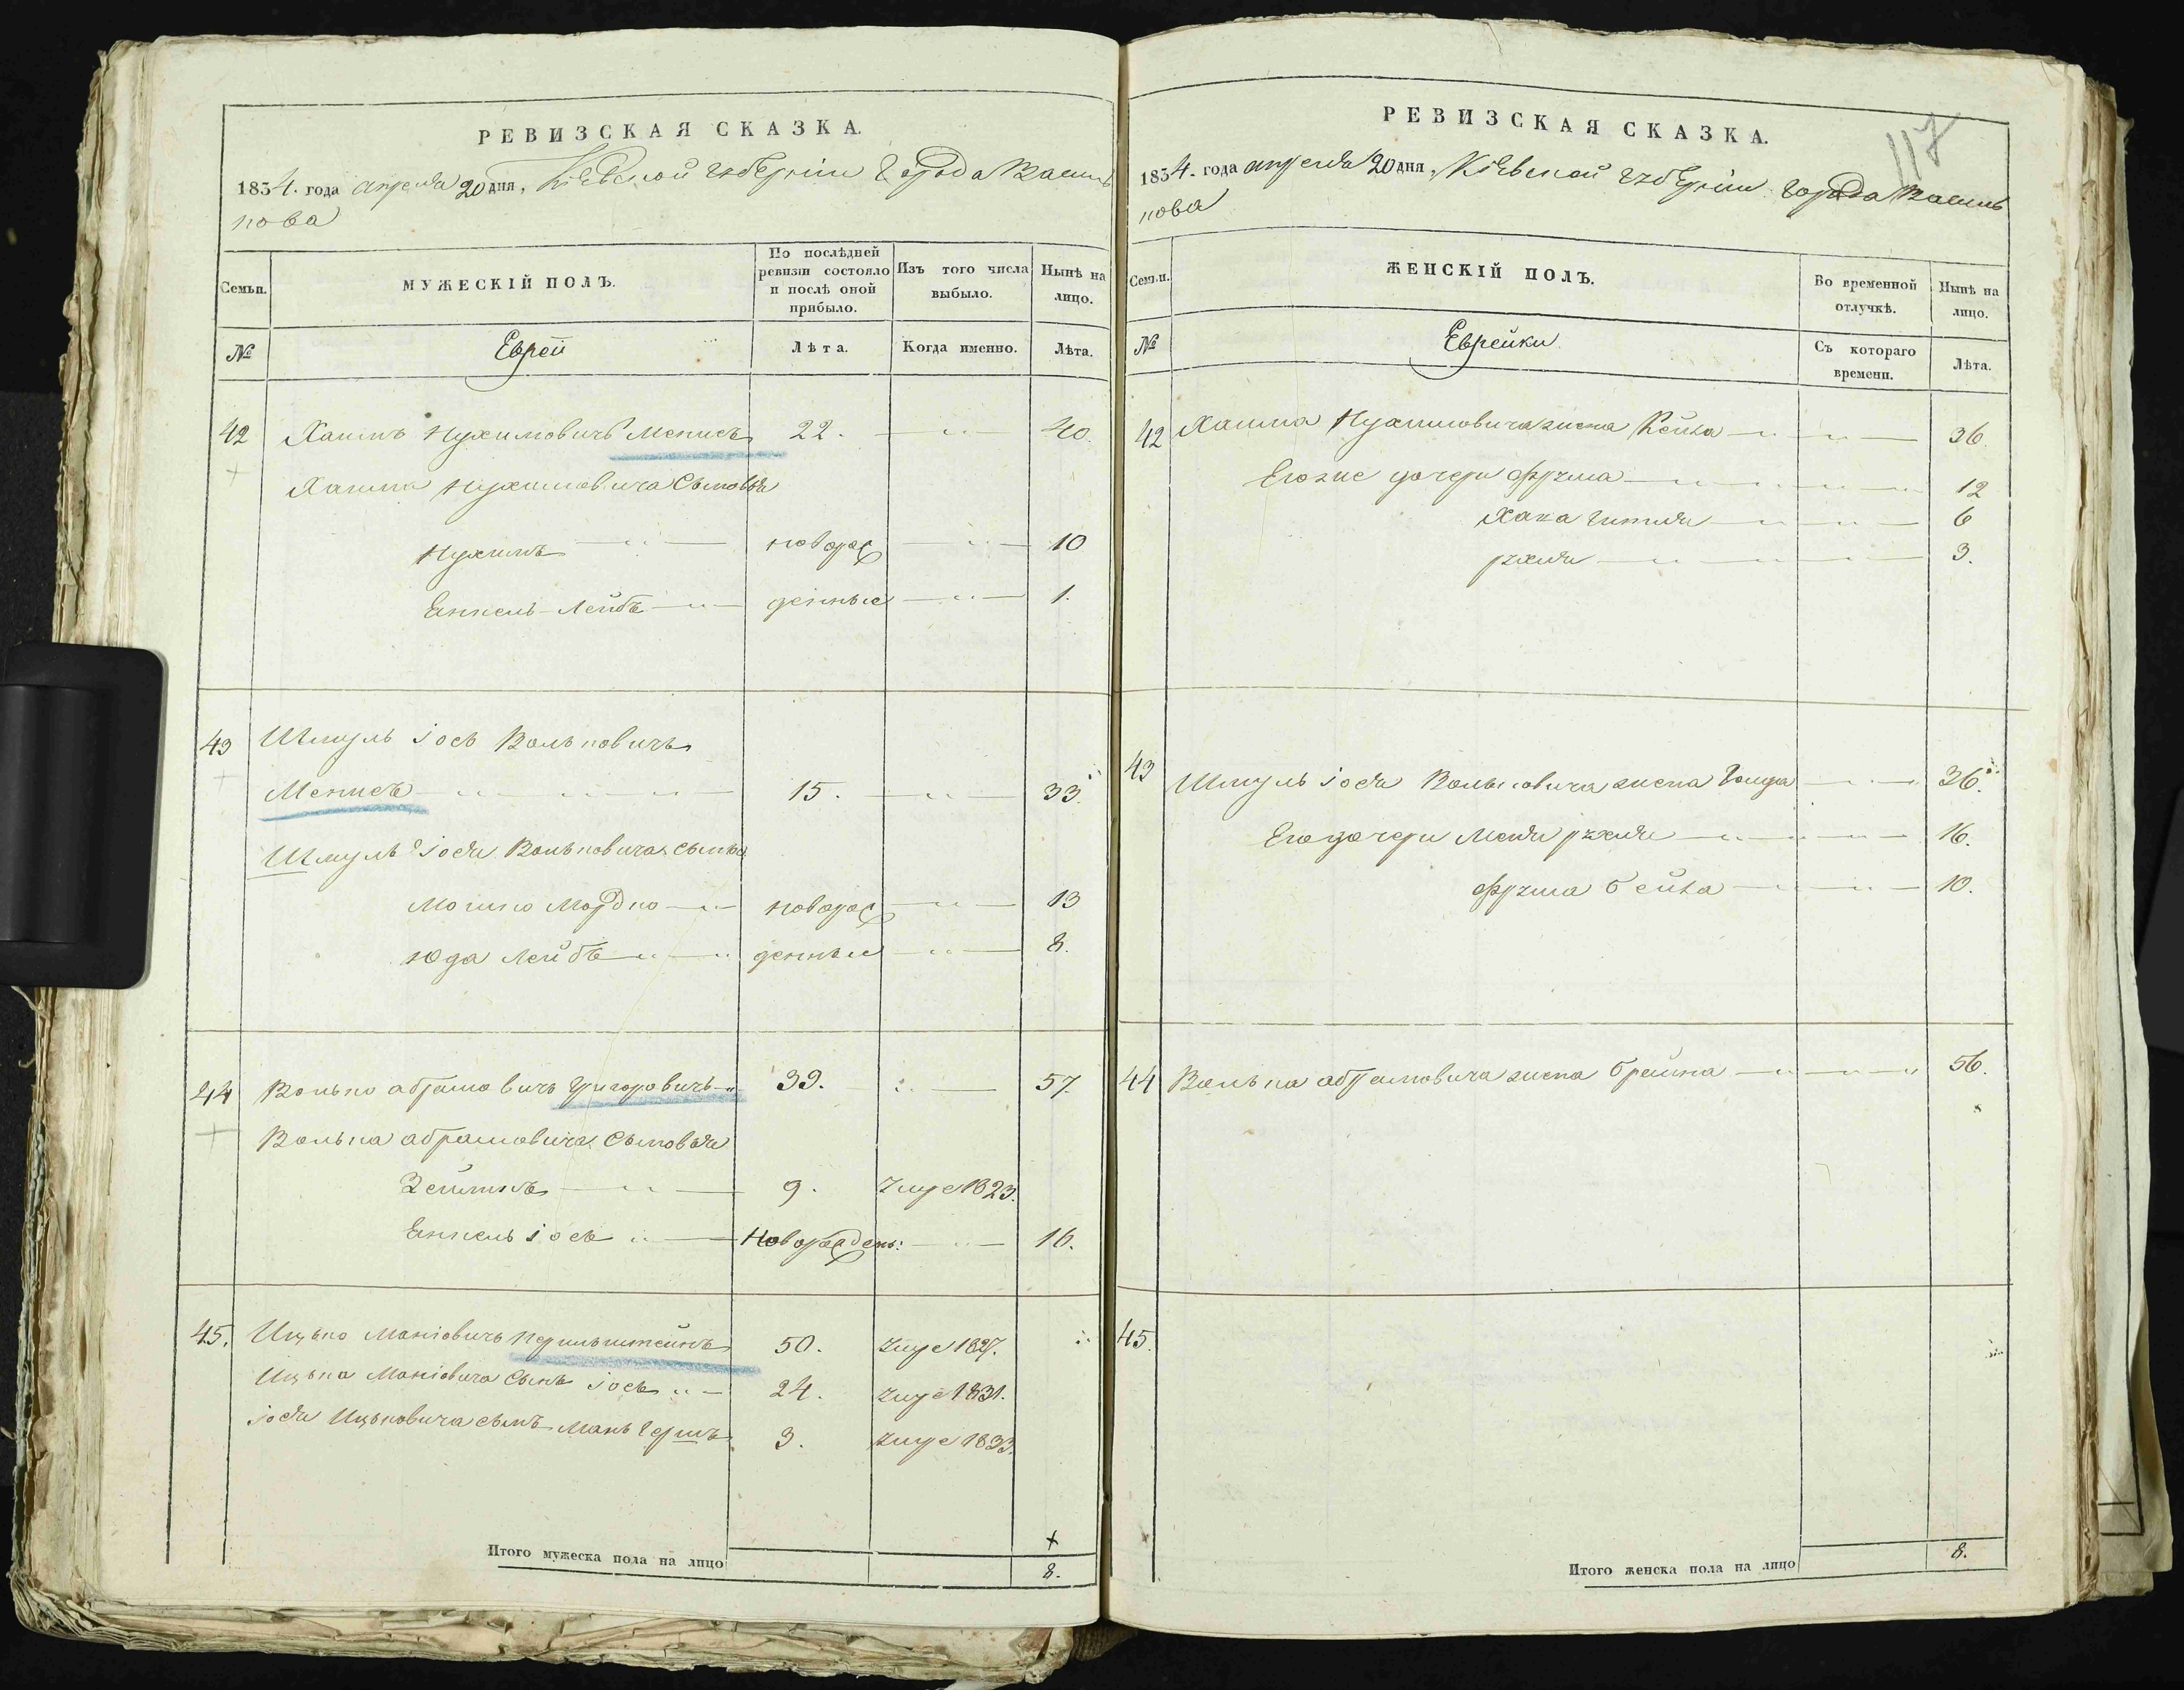 РЕВИЗСКАЯ СКАЗКА.
1834. года апреля 20 дня, Кіевской губерніи города Василь
кова
Семьи. МУЖЕСКІЙ ПОЛЪ. По послѣдней ревизіи состояло и послѣ оной прибыло. Изъ того числа выбыло. Нынѣ на лицо.
№ Еврей Лѣта. Когда именно. Лѣта.
42 Хаимъ Нухимовичъ Менисъ 22. 40.
Хаима Нухимовича Сыновья
Нухимъ новорож 10
Еннель Лейбъ денные 1.
43 Шмуль Іось Вольковичъ
Менисъ 15. 33.
Шмуль Іося Вольковича сыны
Мошко Мордко новорож 13
Юда Лейбъ денные 8.
44 Волько Абрамовичъ Григоровичъ 39. 57.
Волька Абрамовича Сыновья
Зейликъ 9. 1823.
Еннель Іось Новорожден: 16.
45. Ицько Маніовичъ Перильштейнъ 50. 1827.
Ицька Маніовича Сынъ Іось 24. 1831.
Іося Ицьковича сынъ Мань Гершъ 3. 1833.
Итого мужеска пола на лицо 8.
117
РЕВИЗСКАЯ СКАЗКА.
1834. года апреля 20 дня, Кіевской губерніи города Василь
кова
Семьи. ЖЕНСКІЙ ПОЛЪ. Во временной отлучкѣ. Нынѣ на лицо.
№ Еврейки Съ котораго времени. Лѣта.
42 Хаима Нухимовича жена Рейза 36.
Его же дочери Фрума 12
Хана Гитля 6
Рухля 3.
43 Шмуль Іося Вольковича жена Голда 36.
Его дочери Меня Рухля 16.
Фрума Бейла 10.
44 Волька Абрамовича жена Брейна 56.
45.
Итого женска пола на лицо 8.